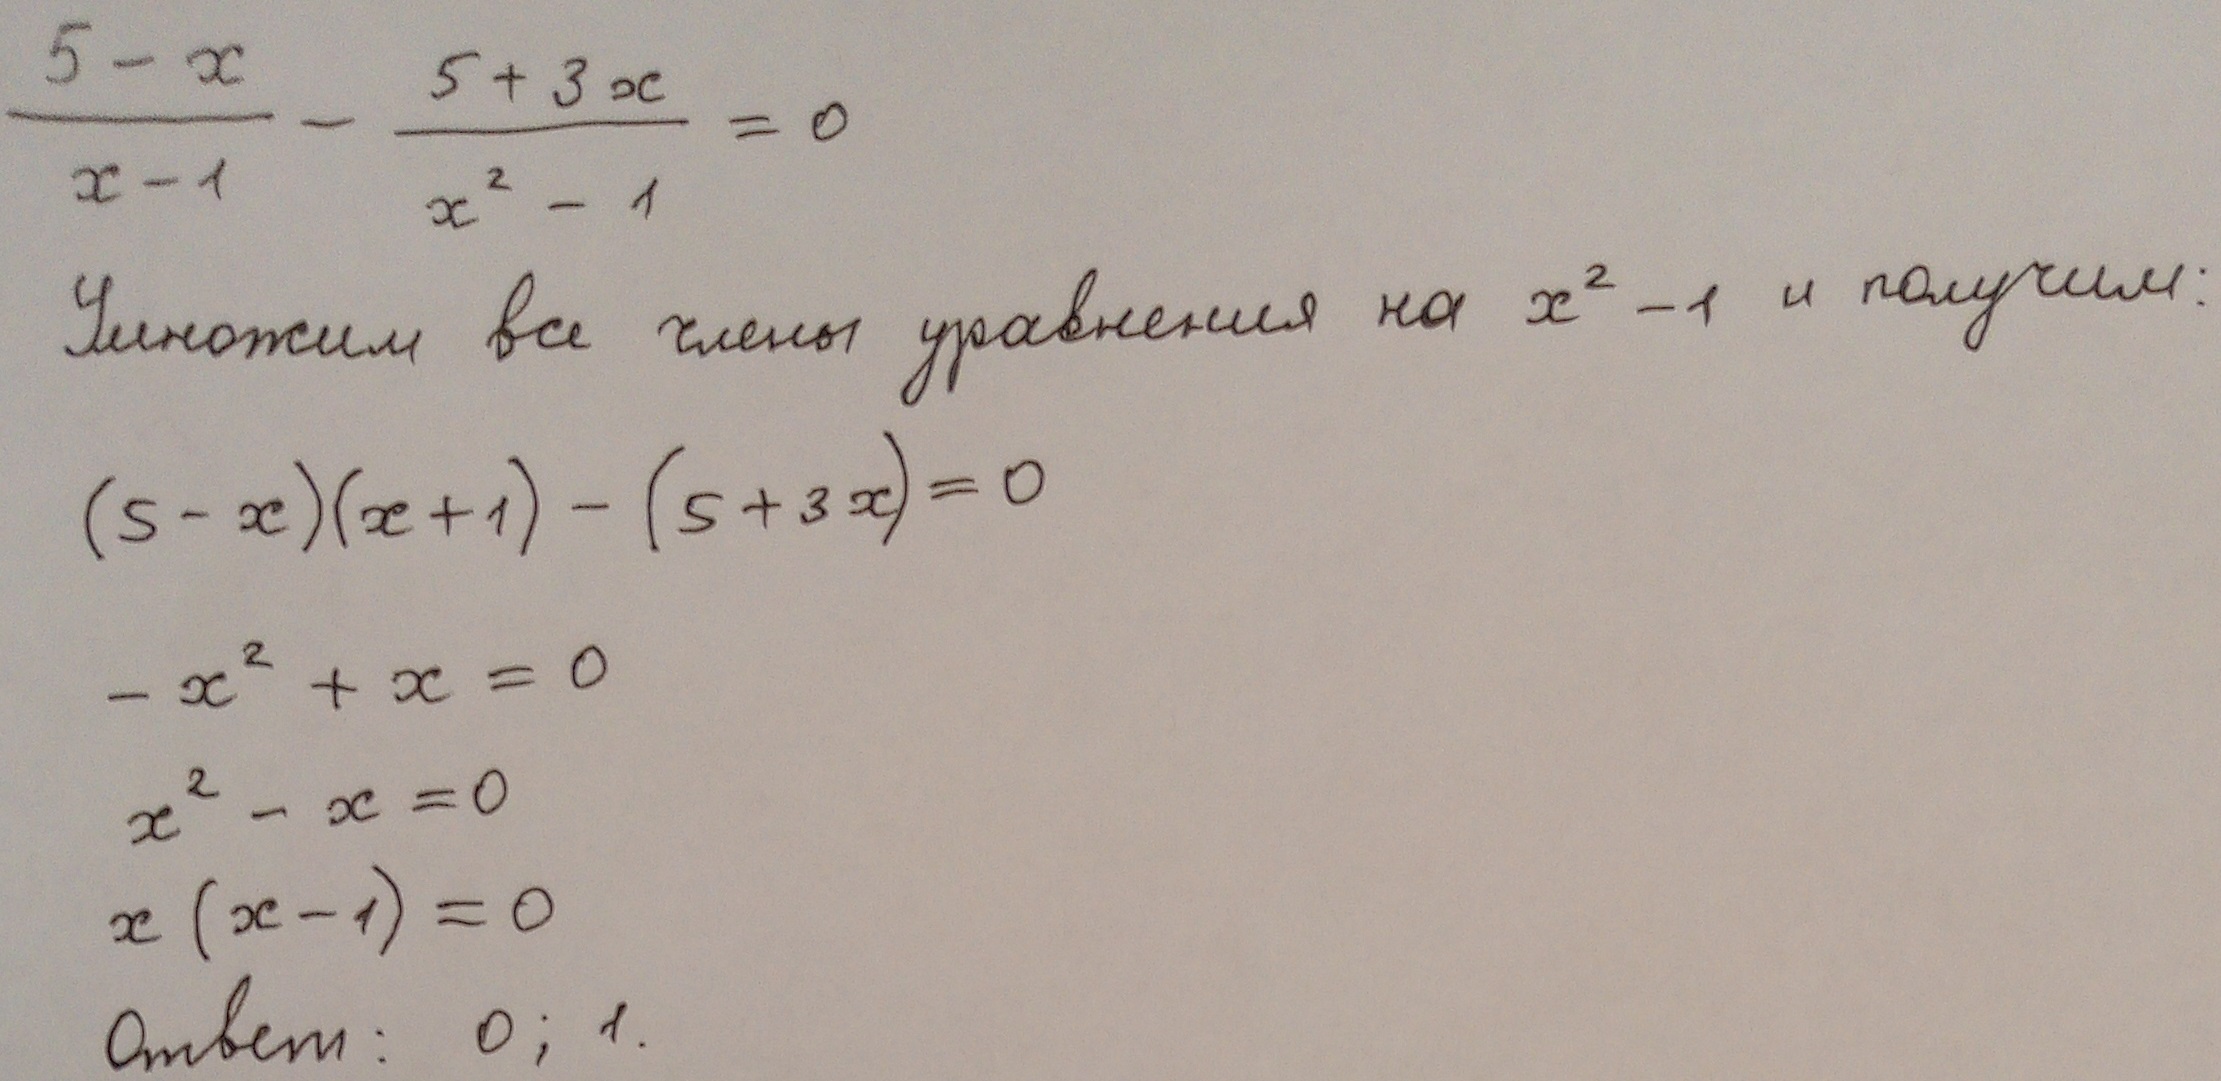 (5 - x)/(x - 1) - (5 + 3x)/(x² - 1) = 0
Умножим все члены уравнения на x² - 1 и получим:
(5 - x)(x + 1) - (5 + 3x) = 0
- x² + x = 0
x² - x = 0
x (x - 1) = 0
Ответ: 0; 1.